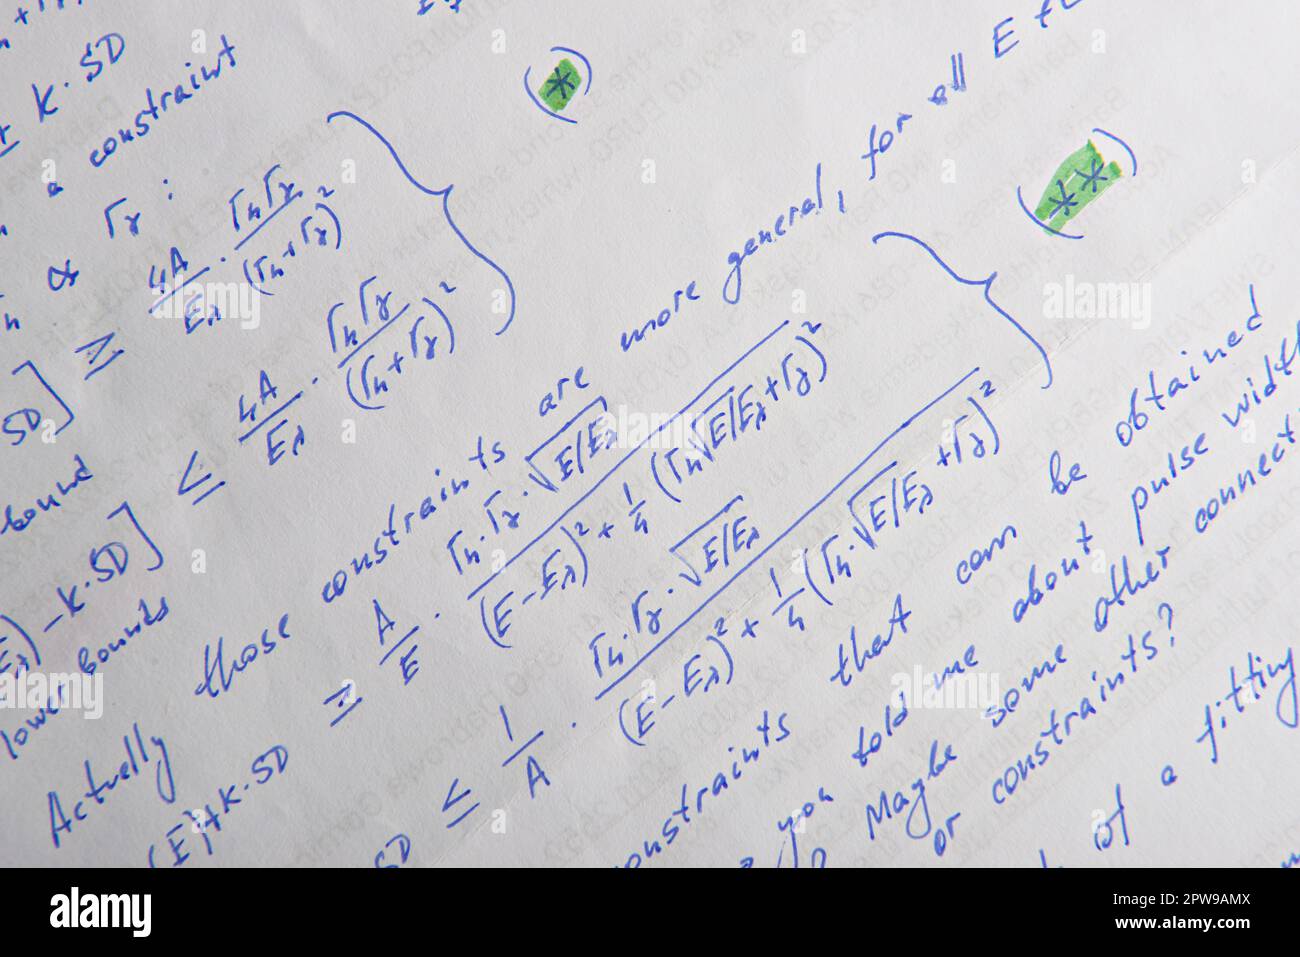 ± K·SD
a constraint
& Γγ :
≥ 4A/Eλ · ΓnΓγ/(Γn+Γγ)²
(*)
SD]
bound
≤ 4A/Eλ · ΓnΓγ/(Γn+Γγ)²
-K·SD]
lower bounds
Actually those constraints are more general, for all E
(**)
(E)+K·SD ≥ A/E · Γn·Γγ·√E/Eλ/((E-Eλ)²+1/4(Γn√E/Eλ+Γγ)²)
SD ≤ 1/A · Γn·Γγ·√E/Eλ/((E-Eλ)²+1/4(Γn·√E/Eλ+Γγ)²)
constraints that can be obtained
you told me about pulse width
? Maybe some other connect
or constraints?
of a fitting
alamy
Image ID: 2PW9AMX
www.alamy.com